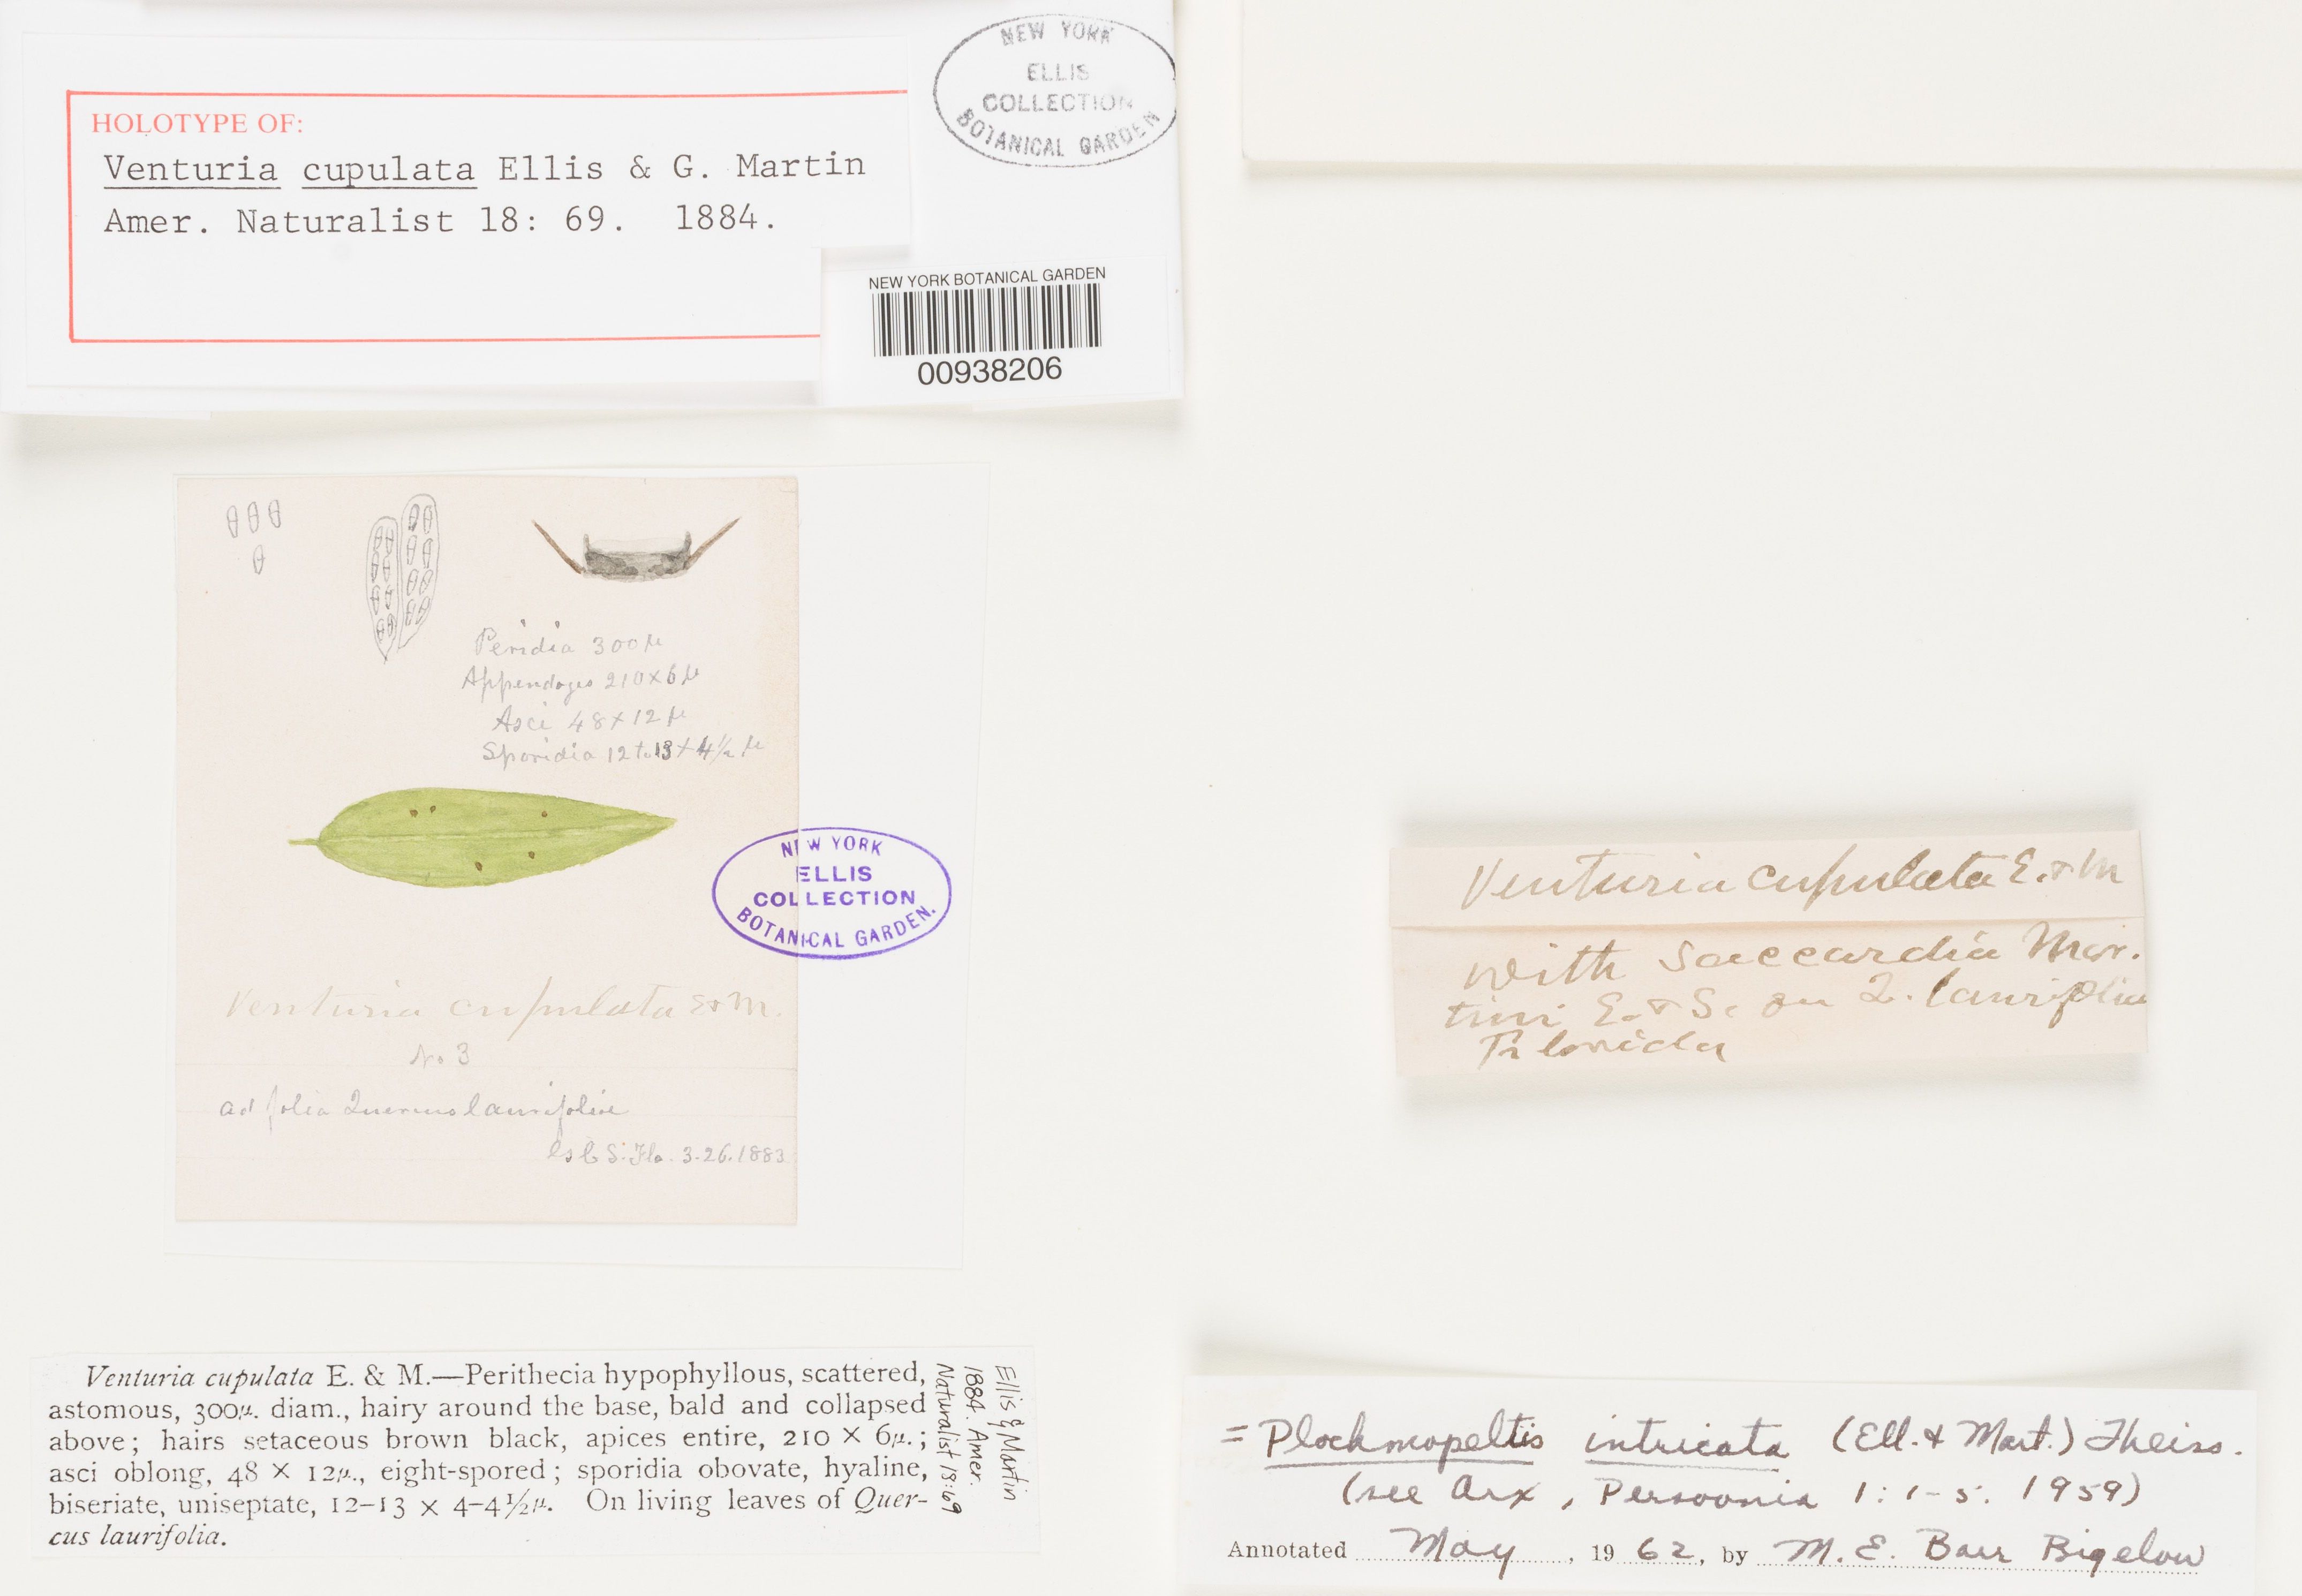 HOLOTYPE OF:
Venturia cupulata Ellis & G. Martin
Amer. Naturalist 18: 69. 1884.
NEW YORK
ELLIS
COLLECTION
BOTANICAL GARDEN
NEW YORK BOTANICAL GARDEN
00938206
Peridia 300 µ
Appendages 210 x 6 µ
Asci 48 x 12 µ
Sporidia 12 to 13 x 4½ µ
NEW YORK
ELLIS
COLLECTION
BOTANICAL GARDEN.
Venturia cupulata E & M.
No 3
ad folia Quercus laurifoliae
S. Fla. 3-26.1883
Venturia cupulata E. & M.—Perithecia hypophyllous, scattered,
astomous, 300µ. diam., hairy around the base, bald and collapsed
above; hairs setaceous brown black, apices entire, 210 × 6µ.;
asci oblong, 48 × 12µ., eight-spored; sporidia obovate, hyaline,
biseriate, uniseptate, 12–13 × 4–4½µ. On living leaves of Quer-
cus laurifolia.
Ellis & Martin
1884. Amer.
Naturalist 18:69
Venturia cupulata E. & M
with Saccardia Mar.
tini E. & S. on Q. laurifolia
Florida
= Plochmopeltis intricata (Ell. & Mart.) Theiss.
(see Arx, Persoonia 1: 1-5. 1959)
Annotated May, 1962, by M. E. Barr Bigelow